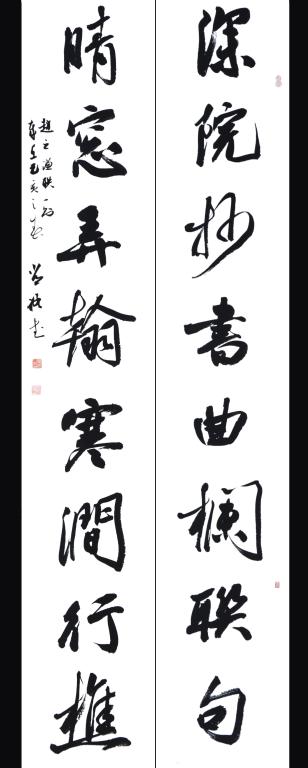 深院抄書曲欄聯句
晴窓弄翰寒澗行樵
趙之謙聯一對